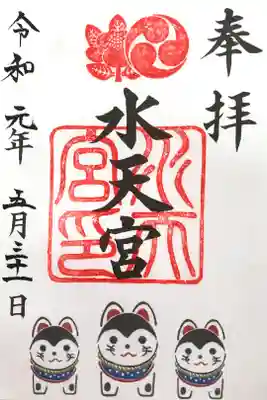 奉拝
水天宮
水天宮印
令和元年五月三十一日